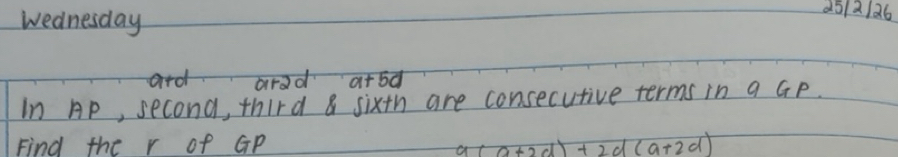 Wednesday
25/2/26
a+d a+2d a+5d
In AP, second, third & sixth are consecutive terms in a GP.
Find the r of GP
a(a+2d) + 2d(a+2d)